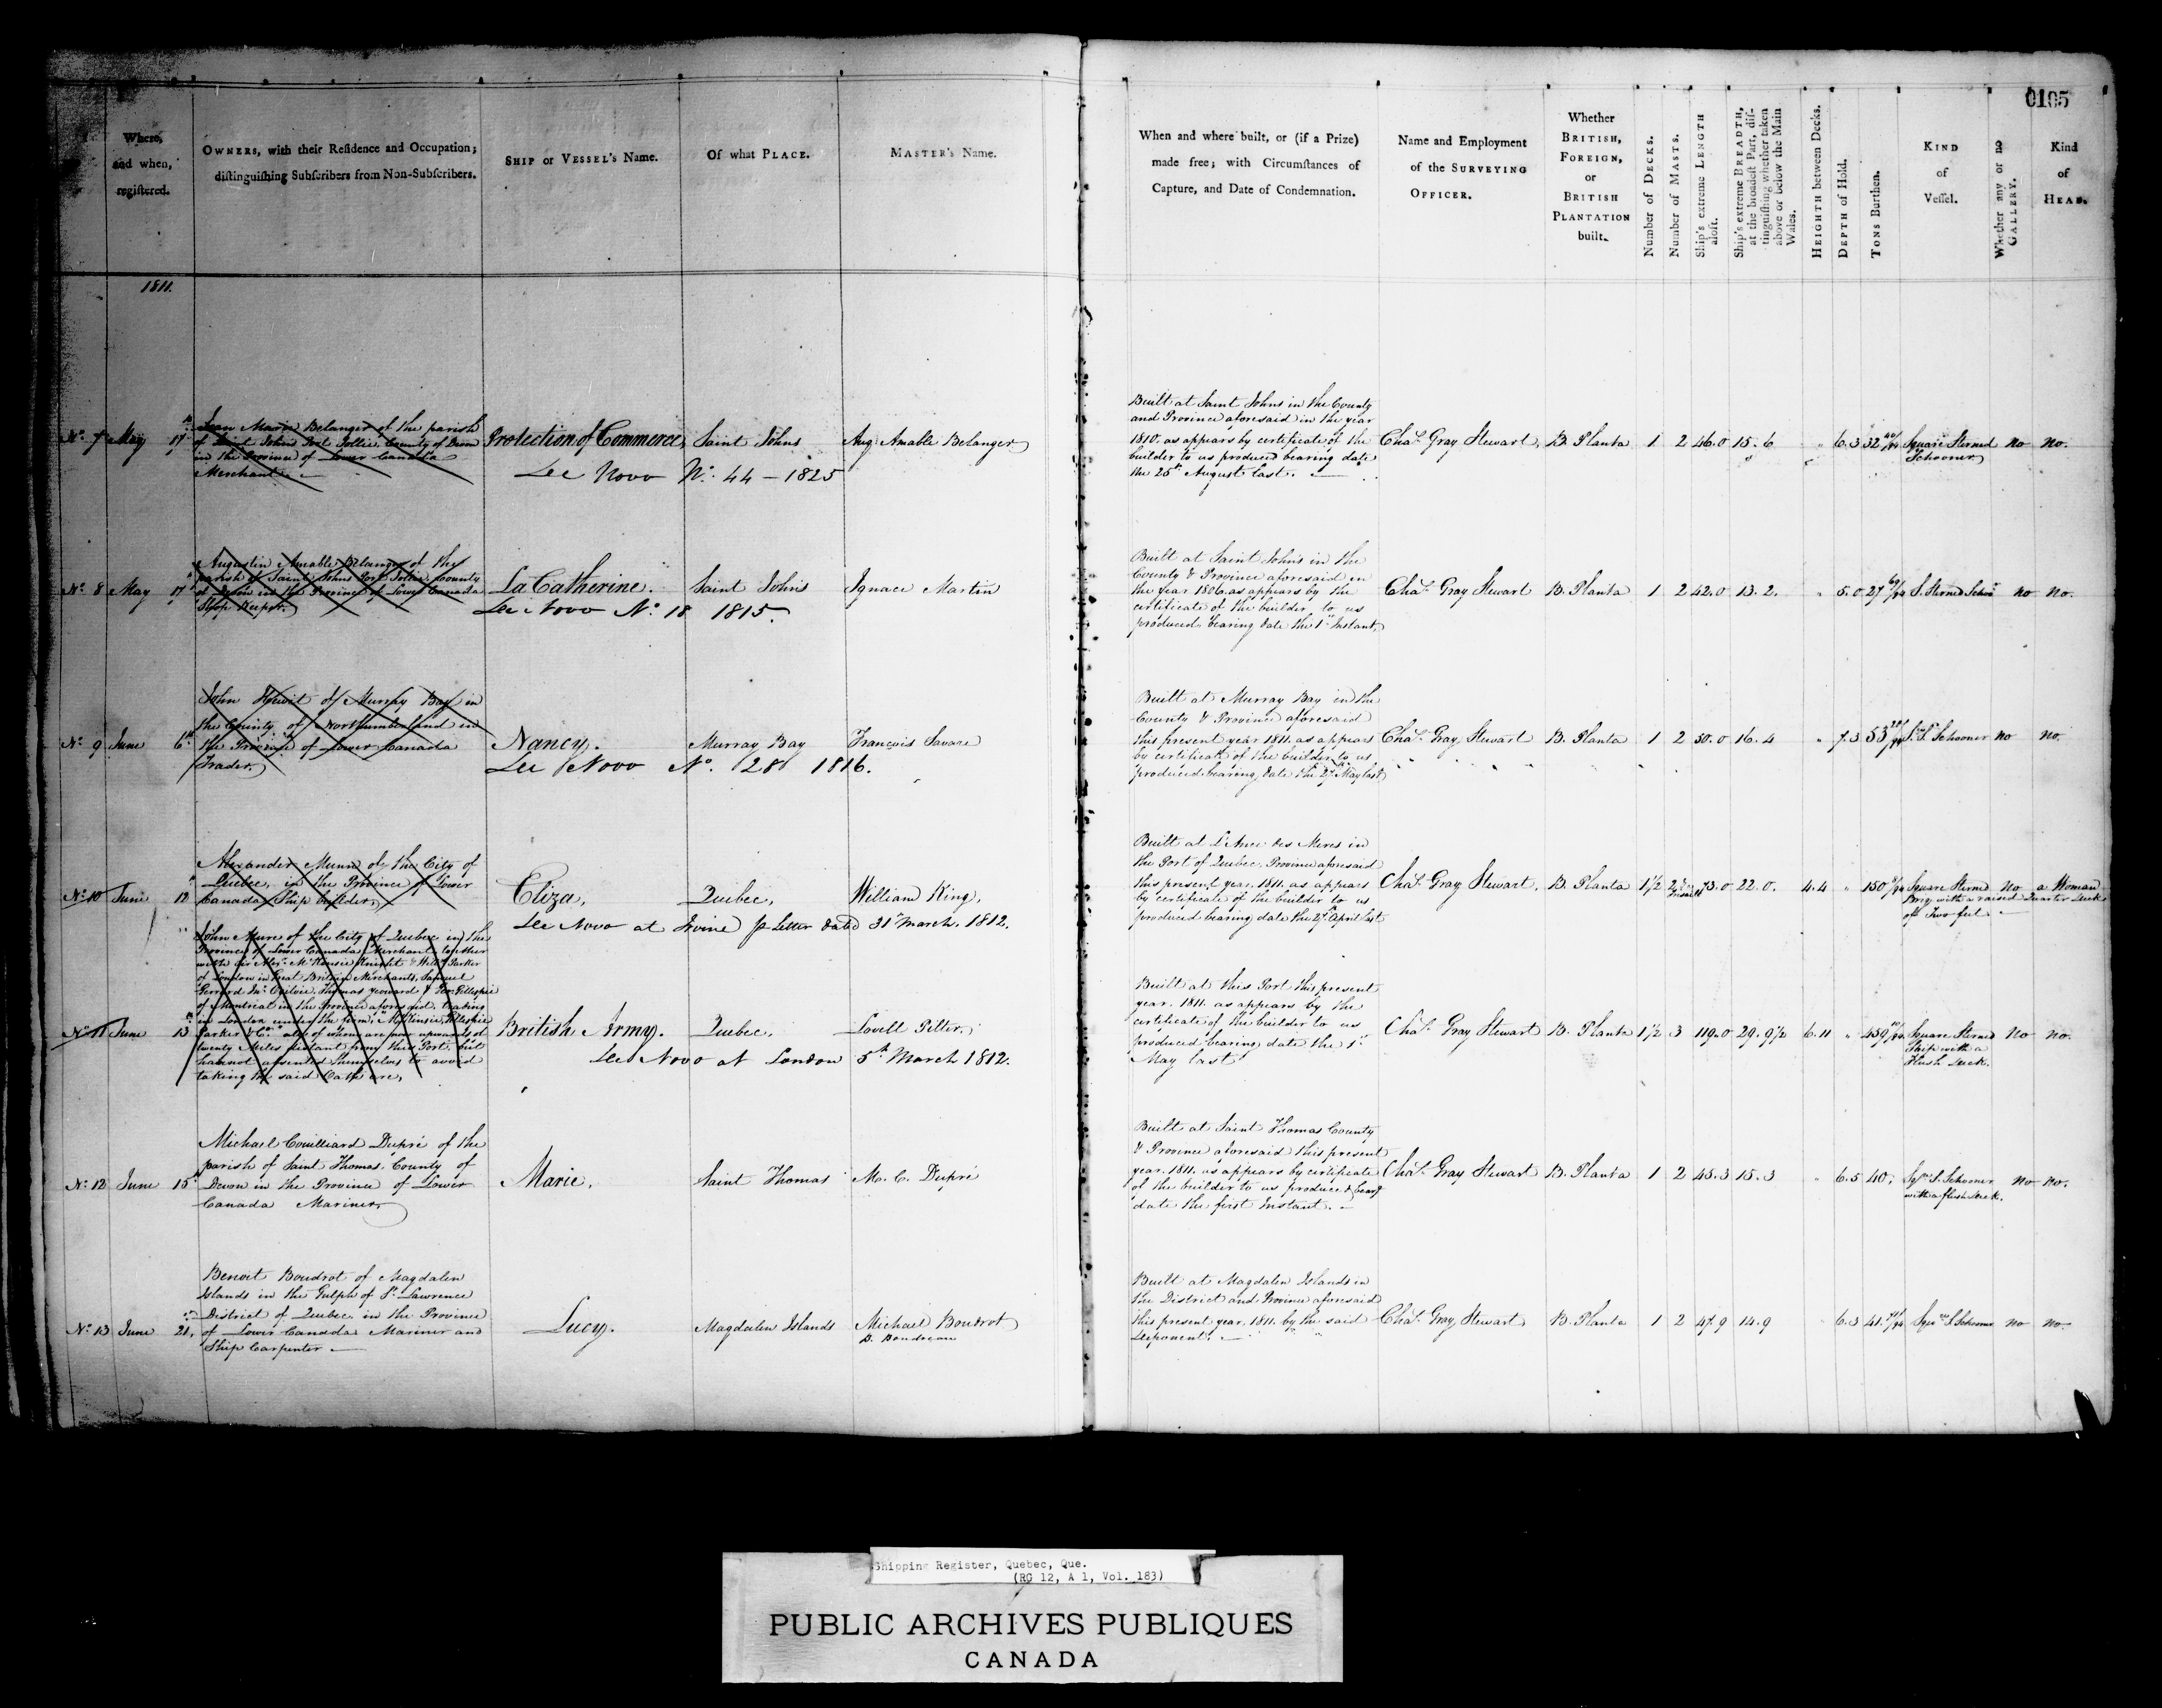 0105
Where, and when, registered.
OWNERS, with their Residence and Occupation; distinguishing Subscribers from Non-Subscribers.
SHIP or VESSEL's Name.
Of what PLACE.
MASTER's Name.
When and where built, or (if a Prize) made free; with Circumstances of Capture, and Date of Condemnation.
Name and Employment of the SURVEYING OFFICER.
Whether BRITISH, FOREIGN, or BRITISH PLANTATION built.
Number of DECKS.
Number of MASTS.
Ship's extreme LENGTH aloft.
Ship's extreme BREADTH, at the broadest Part, distinguishing whether taken above or below the Main Wales.
HEIGHTH between Decks.
DEPTH of Hold.
TONS Burthen.
KIND of Vessel.
Whether any or no GALLERY.
Kind of HEAD.
1811.
No. 7 May 17th
Jean Marie Belanger of the parish
of Saint Johns Port Jollie, County of Devon
in the Province of Lower Canada
Merchant
Protection of Commerce,
See Novo No. 44 - 1825
Saint Johns
Aug: Amable Belanger
Built at Saint Johns in the County
and Province aforesaid in the year
1810. as appears by certificate of the
builder to us produced bearing date
the 25th August last.
Chas. Gray Stewart, B. Planta 1 2 46.0 15.6 " 6.3 32 40/94 Square Sterned Schooner no no.
No. 8 May 17th
Augustin Amable Belanger of the
parish of Saint Johns Port Jollie, County
of Devon in the Province of Lower Canada
Ship Keeper.
La Catherine.
See Novo No. 18 1815.
Saint Johns
Ignace Martin
Built at Saint Johns in the
County & Province aforesaid in
the year 1806. as appears by the
certificate of the builder to us
produced bearing date the 1st Instant,
Chas. Gray Stewart B. Planta 1 2 42.0 13.2. " 5.0 27 69/94 S. Sterned Schr no no.
No. 9 June 6th
John Hewit of Murray Bay in
the County of Northumberland in
the Province of Lower Canada
Trader.
Nancy.
See Novo No. 28 1816.
Murray Bay
François Savare
Built at Murray Bay in the
County & Province aforesaid
this present year 1811. as appears
by certificate of the builder to us
produced bearing date the 27th May last
Chas. Gray Stewart B. Planta 1 2 50.0 16.4 " 7.3 53 S. S. Schooner no no.
No. 10 June 12th
Alexander Munn of the City of
Quebec, in the Province of Lower
Canada Ship builder,
Eliza,
See Novo at Irvine p Letter dated 31st March. 1812.
Quebec,
William King,
Built at L'Ance des Meres in
the Port of Quebec, Province aforesaid
this present year. 1811. as appears
by certificate of the builder to us
produced bearing date the 27th April last
Chas. Gray Stewart. B. Planta 1 1/2 2 73.0 22.0. 4.4 " 150 Square Sterned Brig with a raised Quarter Deck of Two feet no a Woman
No. 11 June 13th
John Mure of the City of Quebec in the
Province of Lower Canada, Merchant together
with Sir Alexr. McKensie Knight & Willm. Parker
of London in Great Britain Merchants, Samuel
Gerrard Jno. Ogilvie. Thomas Yeoward & Geo. Gillespie
of Montreal in the Province aforesaid. trading
in London under the firm, McKinsie, Gillespie
Parker & Co. all of whom are now upwards of
twenty Miles distant from this Port, but
has not absented themselves to avoid
taking the said Oath are,
British Army.
See Novo at London 5th March 1812.
Quebec,
Lovell Pelter,
Built at this Port this present
year. 1811. as appears by the
certificate of the builder to us
produced bearing date the 1st
May last
Chas. Gray Stewart B. Planta 1 1/2 3 119.0 29.9 1/2 6.11 " 459 Square Sterned Ship with a Flush Deck. no no.
No. 12 June 15th
Michael Couilliard Dupré of the
parish of Saint Thomas, County of
Devon in the Province of Lower
Canada Mariner,
Marie,
Saint Thomas
M. C. Dupré
Built at Saint Thomas County
& Province aforesaid this present
year. 1811. as appears by certificate
of the builder to us produced & bearg
date the first Instant.
Chas. Gray Stewart B. Planta 1 2 45.3 15.3 " 6.5 40. Sqre. S. Schooner with a flush deck. no no.
No. 13 June 21,
Benoit Boudrot of Magdalen
Islands in the Gulph of St. Lawrence
District of Quebec in the Province
of Lower Canada Mariner and
Ship Carpenter
Lucy.
Magdalen Islands
Michael Boudrot
B. Boudreau
Built at Magdalen Islands in
the District and Province aforesaid
this present year. 1811. by the said
Deponent.
Chas. Gray Stewart B. Planta 1 2 47.9 14.9 6.3 41. Sqre S. Schooner no no.
Shipping Register, Quebec, Que.
(RG 12, A 1, Vol. 183)
PUBLIC ARCHIVES PUBLIQUES
CANADA